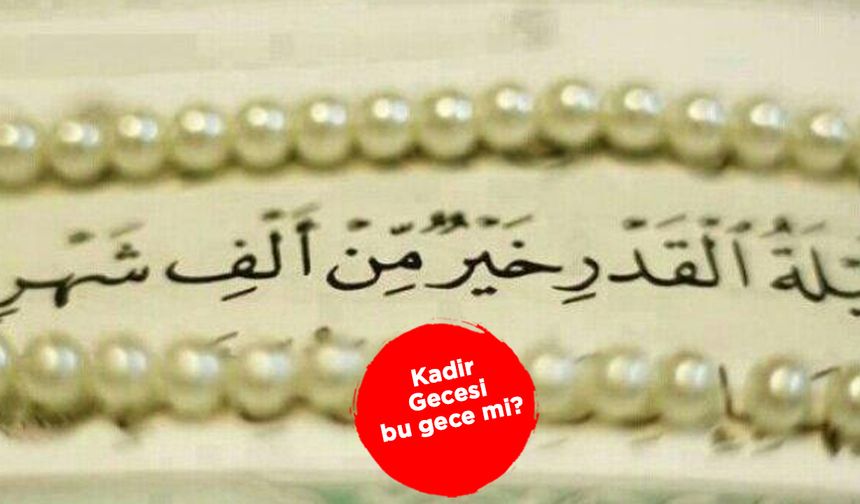 ـلَةُ ٱلْقَدْرِ خَيْرٌ مِّنْ أَلْفِ شَهْرٍ
Kadir
Gecesi
bu gece mi?